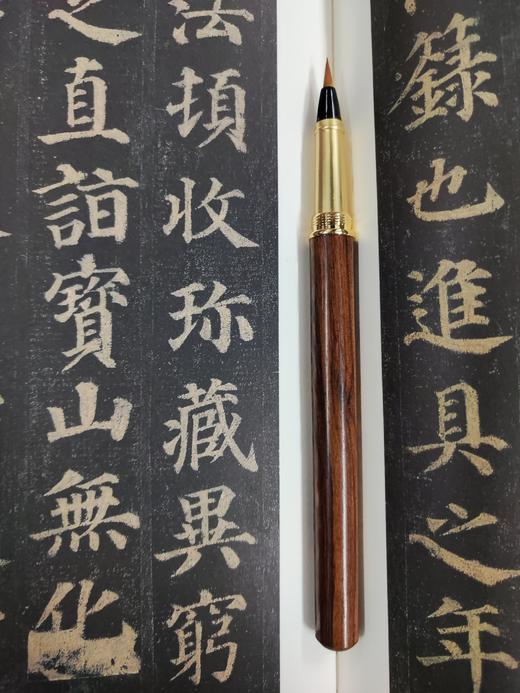 籙也進具之年
法頓收珍藏異窮
直詣寶山無化